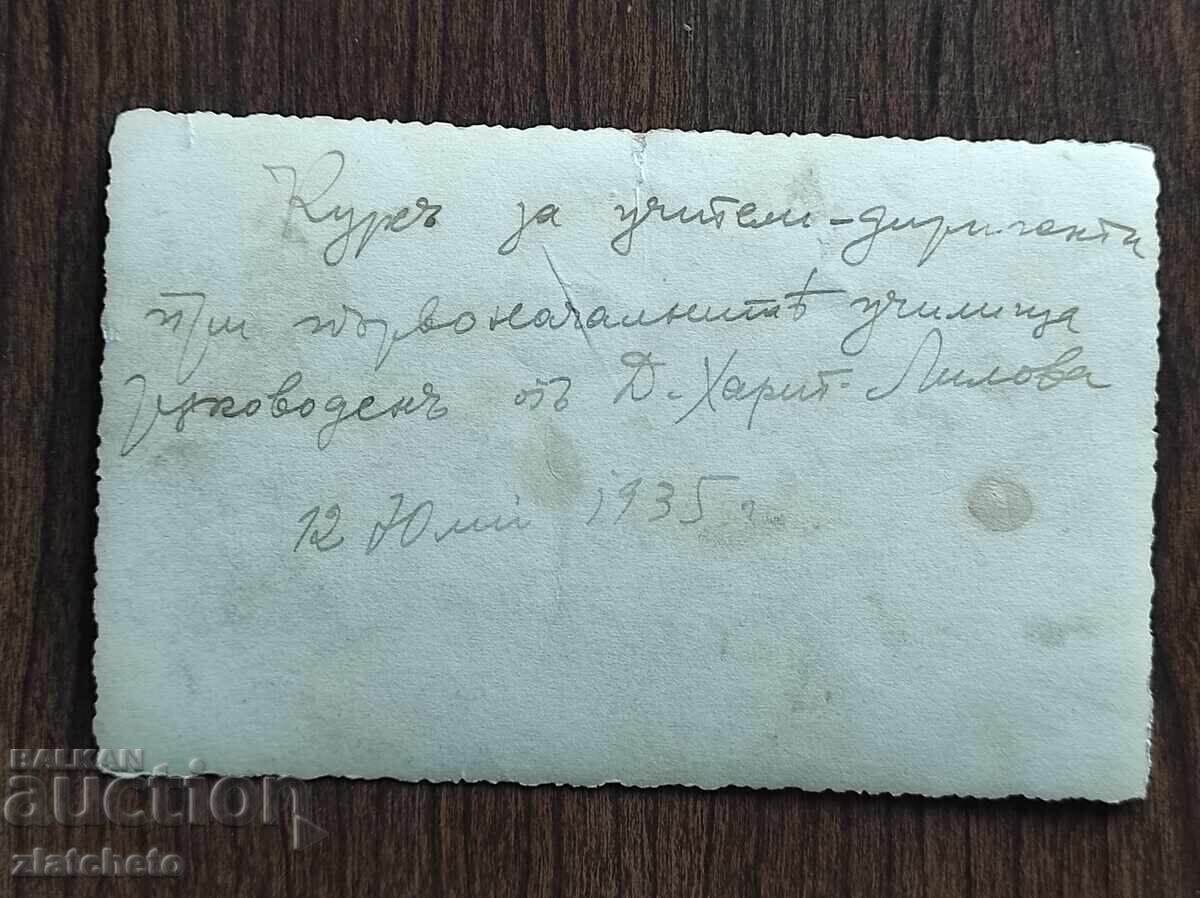 Курсъ за учители-диригенти
при първоначалнитѣ училища
рѫководенъ отъ Д. Харит. Лилова
12 Юлий 1935 г.
BALKAN
auction
zlatcheto